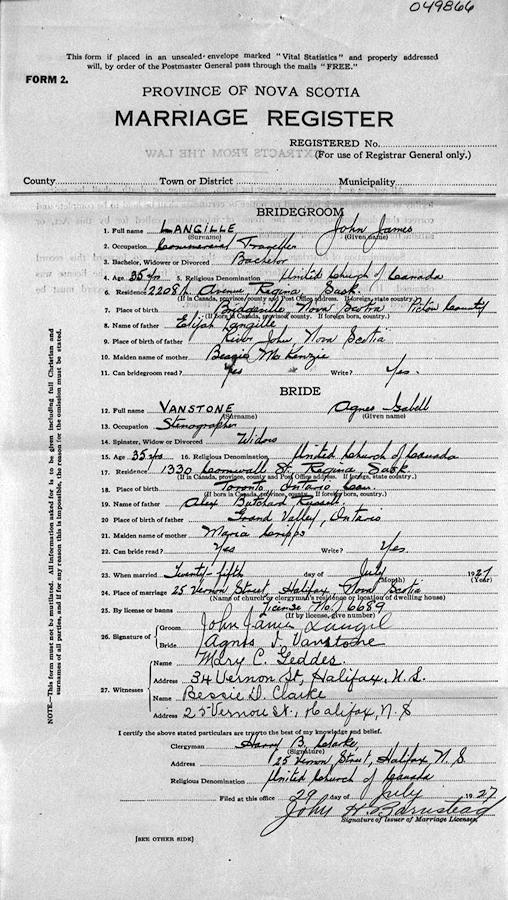 049866
This form if placed in an unsealed envelope marked "Vital Statistics" and properly addressed
will, by order of the Postmaster General pass through the mails "FREE."
FORM 2.
PROVINCE OF NOVA SCOTIA
MARRIAGE REGISTER
REGISTERED No.
(For use of Registrar General only.)
County Town or District Municipality
BRIDEGROOM
1. Full name LANGILLE John James
(Surname) (Given name)
2. Occupation Commercial Traveller
3. Bachelor, Widower or Divorced Bachelor
4. Age 35 yrs 5. Religious Denomination United Church of Canada
6. Residence 2208 Avenue Regina Sask.
(If in Canada, province/county and Post Office address. If foreign, state country)
7. Place of birth Bridgeville Nova Scotia Pictou County
(If born in Canada, province, county. If foreign born, country.)
8. Name of father Elijah Langille
9. Place of birth of father River John, Nova Scotia
10. Maiden name of mother Bessie McKenzie
11. Can bridegroom read? Yes Write? Yes.
BRIDE
12. Full name VANSTONE Agnes Isabell
(Surname) (Given name)
13. Occupation Stenographer
14. Spinster, Widow or Divorced Widow
15. Age 35 yrs 16. Religious Denomination United Church of Canada
17. Residence 1330 Cornwall St. Regina Sask
(If in Canada, province, county and Post Office Address. If foreign, state country)
18. Place of birth Toronto Ontario Can.
(If born in Canada, province, county. If foreign born, country.)
19. Name of father Alex Butchard
20. Place of birth of father Grand Valley, Ontario
21. Maiden name of mother Maria Cripps
22. Can bride read? Yes Write? Yes.
23. When married Twenty-fifth day of July 1927
(Month) (Year)
24. Place of marriage 25 Vernon Street, Halifax, Nova Scotia
(Name of church or clergyman's residence or location of dwelling house)
25. By license or banns License No. 16689
(If by license, give number)
26. Signature of Groom John James
Bride Agnes I. Vanstone
27. Witnesses Name Mary C. Geddes.
Address 34 Vernon St, Halifax, N.S.
Name Bessie D. Clarke
Address 25 Vernon St., Halifax, N.S
I certify the above stated particulars are true to the best of my knowledge and belief.
Clergyman Harry B. Clarke,
(Signature)
Address 25 Vernon Street, Halifax N.S.
Religious Denomination United Church of Canada
Filed at this office 29 day of July 1927
John H. Barnstead
Signature of Issuer of Marriage Licenses.
[SEE OTHER SIDE]
NOTE—This form must not be mutilated. All information asked for is to be given including full Christian and
surnames of all parties, and if for any reason this is impossible, the reason for the omission must be stated.